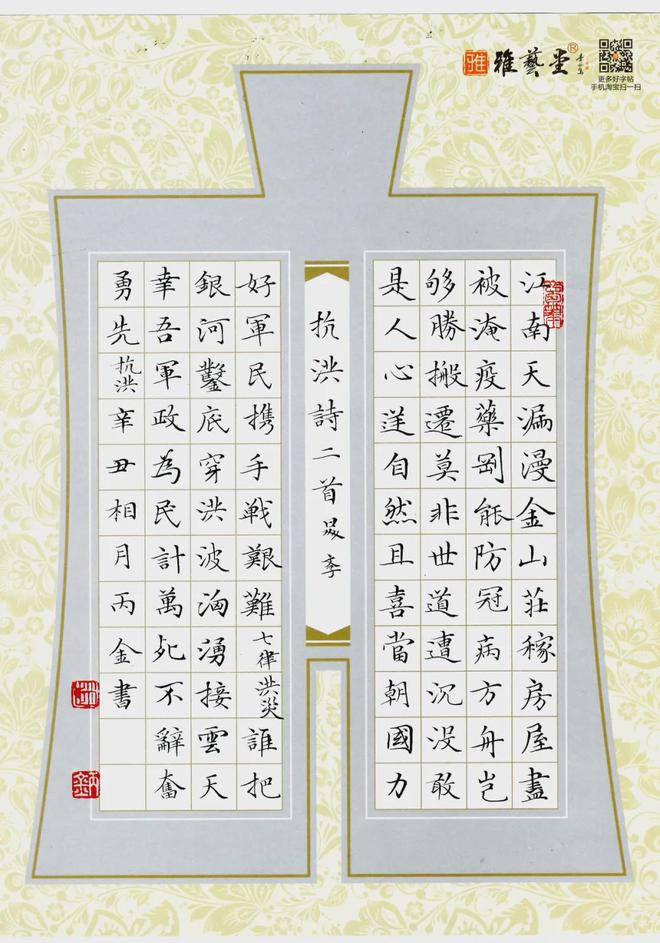 雅 雅藝堂®
更多好字帖
手机淘宝扫一扫
江南天漏漫金山莊稼房屋盡
被淹疫藥剛能防冠病方舟豈
够勝搬遷莫非世道遭沉没敢
是人心逆自然且喜當朝國力
抗洪詩二首 李
好軍民携手戦艱難七律洪災誰把
銀河鑿底穿洪波洶湧接雲天
幸吾軍政為民計萬死不辭奮
勇先抗洪辛丑相月丙金書